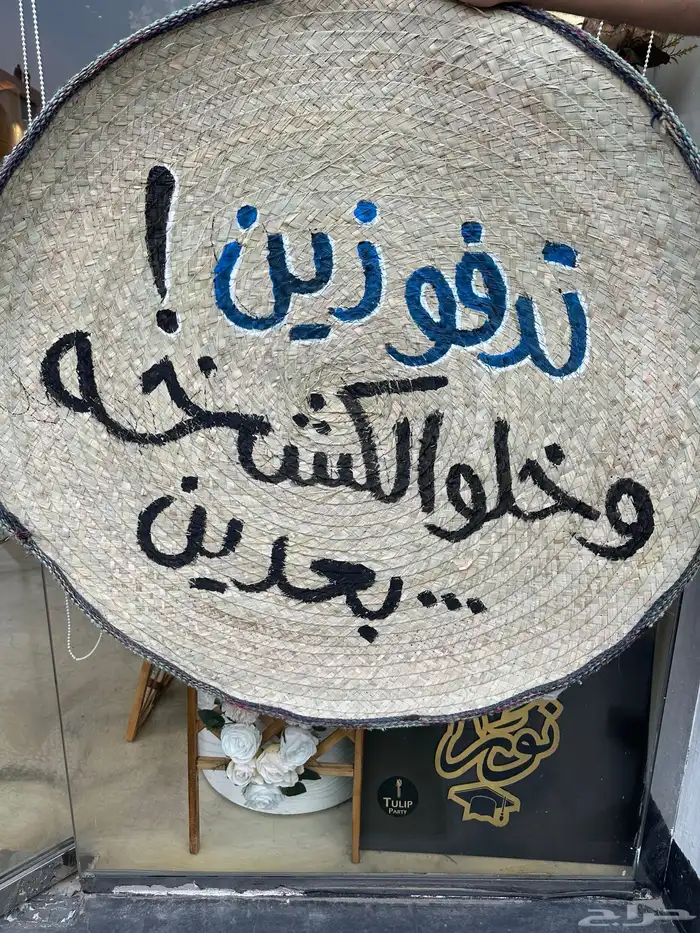 تدفوزين !
وخلوا الكشخه
... بعدين
TULIP
PARTY
حراج